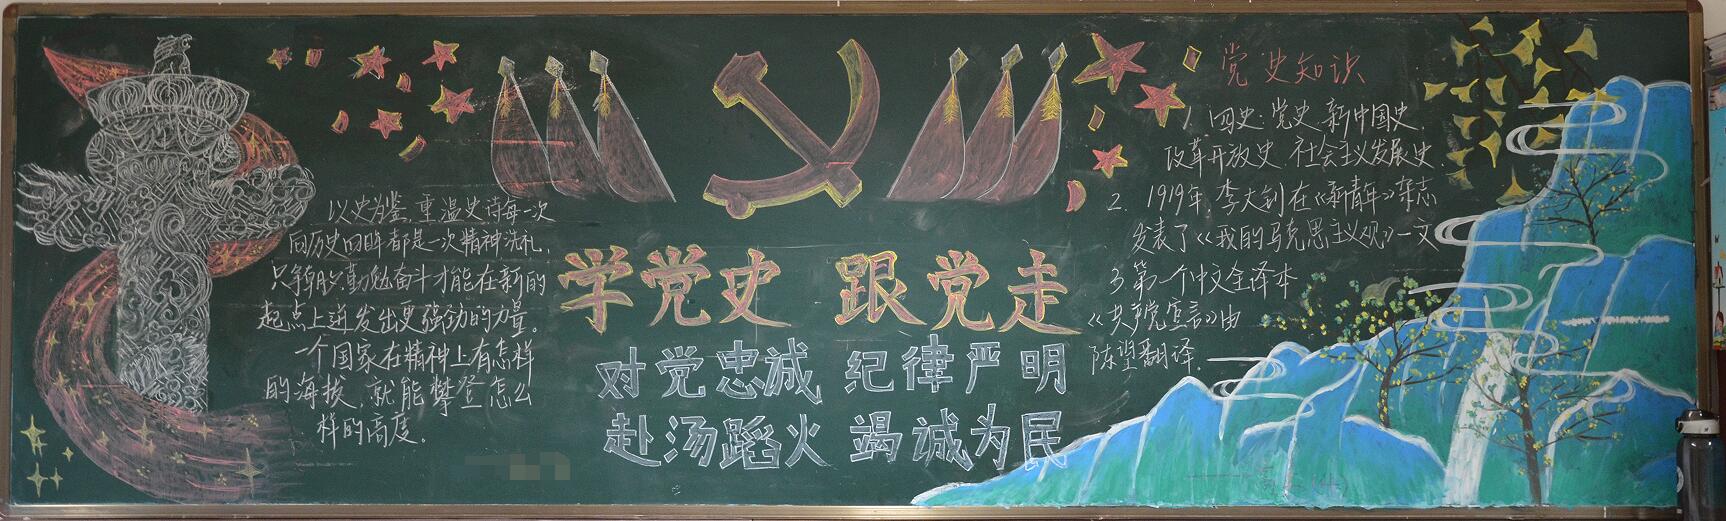 以史为鉴,重温史诗每一次
回历史回眸都是一次精神洗礼,
只有勤勉奋斗才能在新的
起点上迸发出更强劲的力量。
一个国家在精神上有怎样
的海拔,就能攀登怎么
样的高度。
学党史 跟党走
对党忠诚 纪律严明
赴汤蹈火 竭诚为民
党史知识
1. 四史:党史、新中国史、
改革开放史、社会主义发展史
2. 1919年,李大钊在《新青年》杂志
发表了《我的马克思主义观》一文
3. 第一个中文全译本
《共产党宣言》由
陈望翻译.